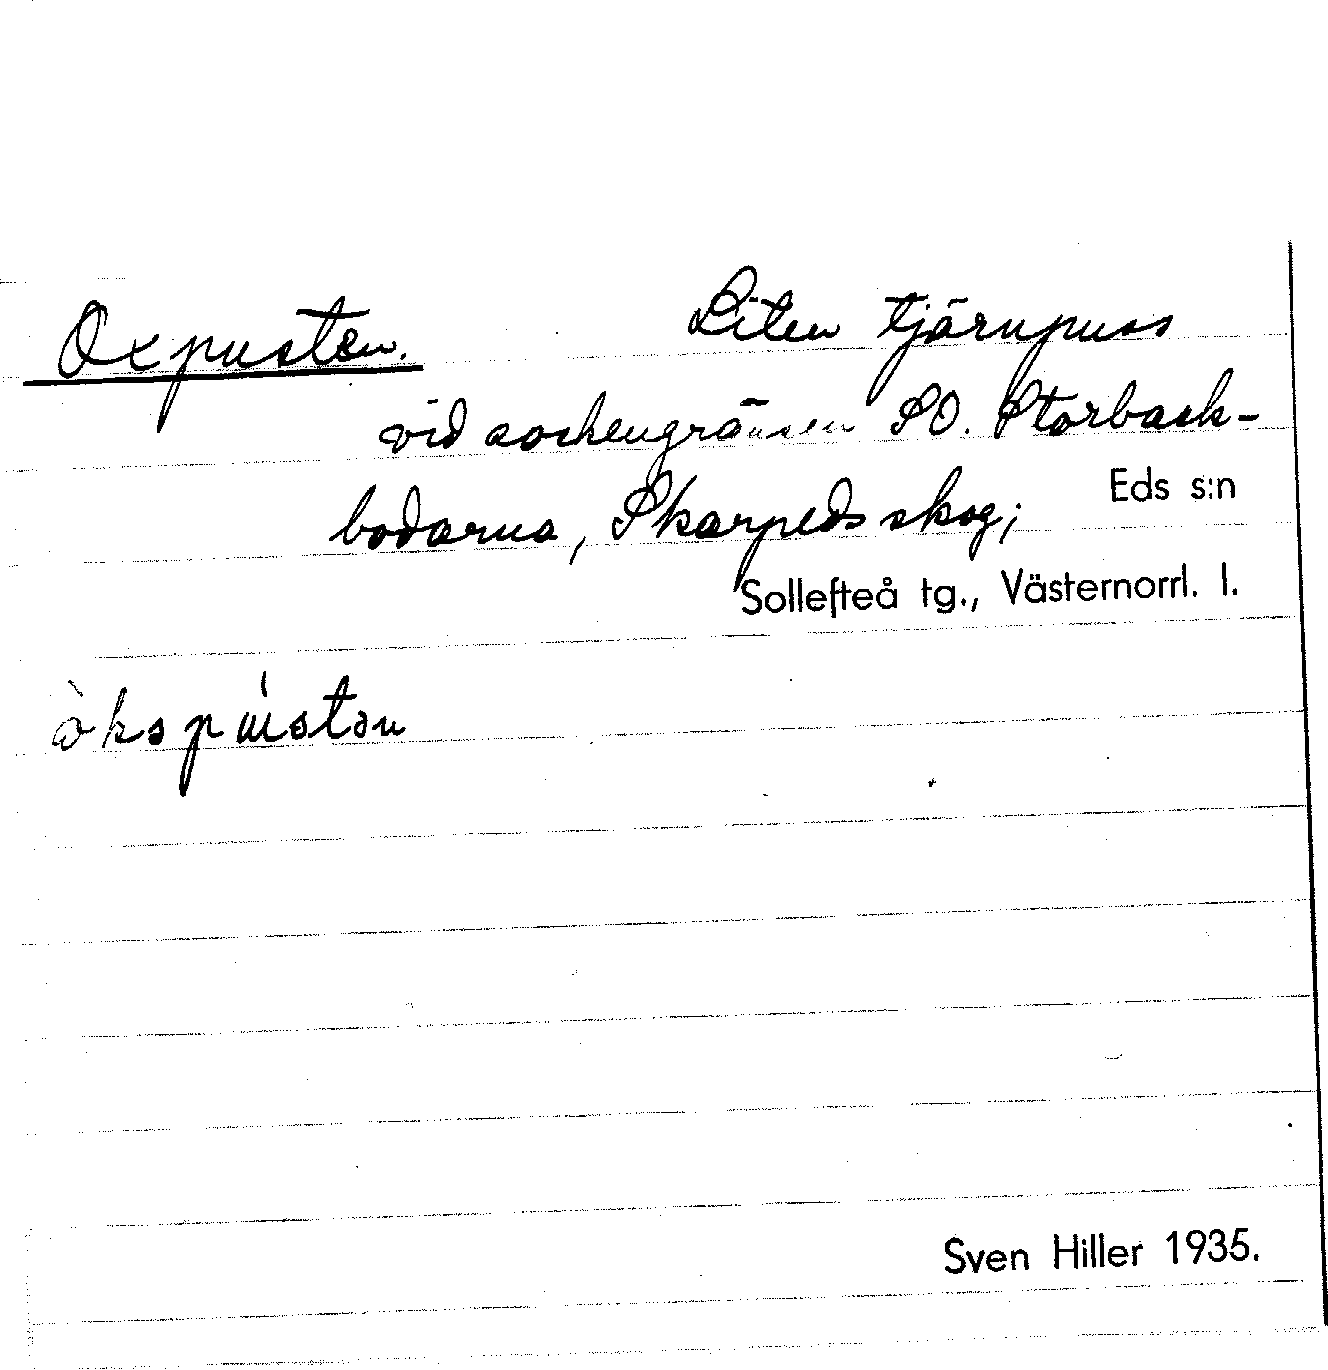 Oxpusten. Liten tjärnpuss
vid sockengränsen SO. Storback-
bodarna, Skarpeds skog;
Eds s:n
Sollefteå tg., Västernorrl. l.
Sven Hiller 1935.